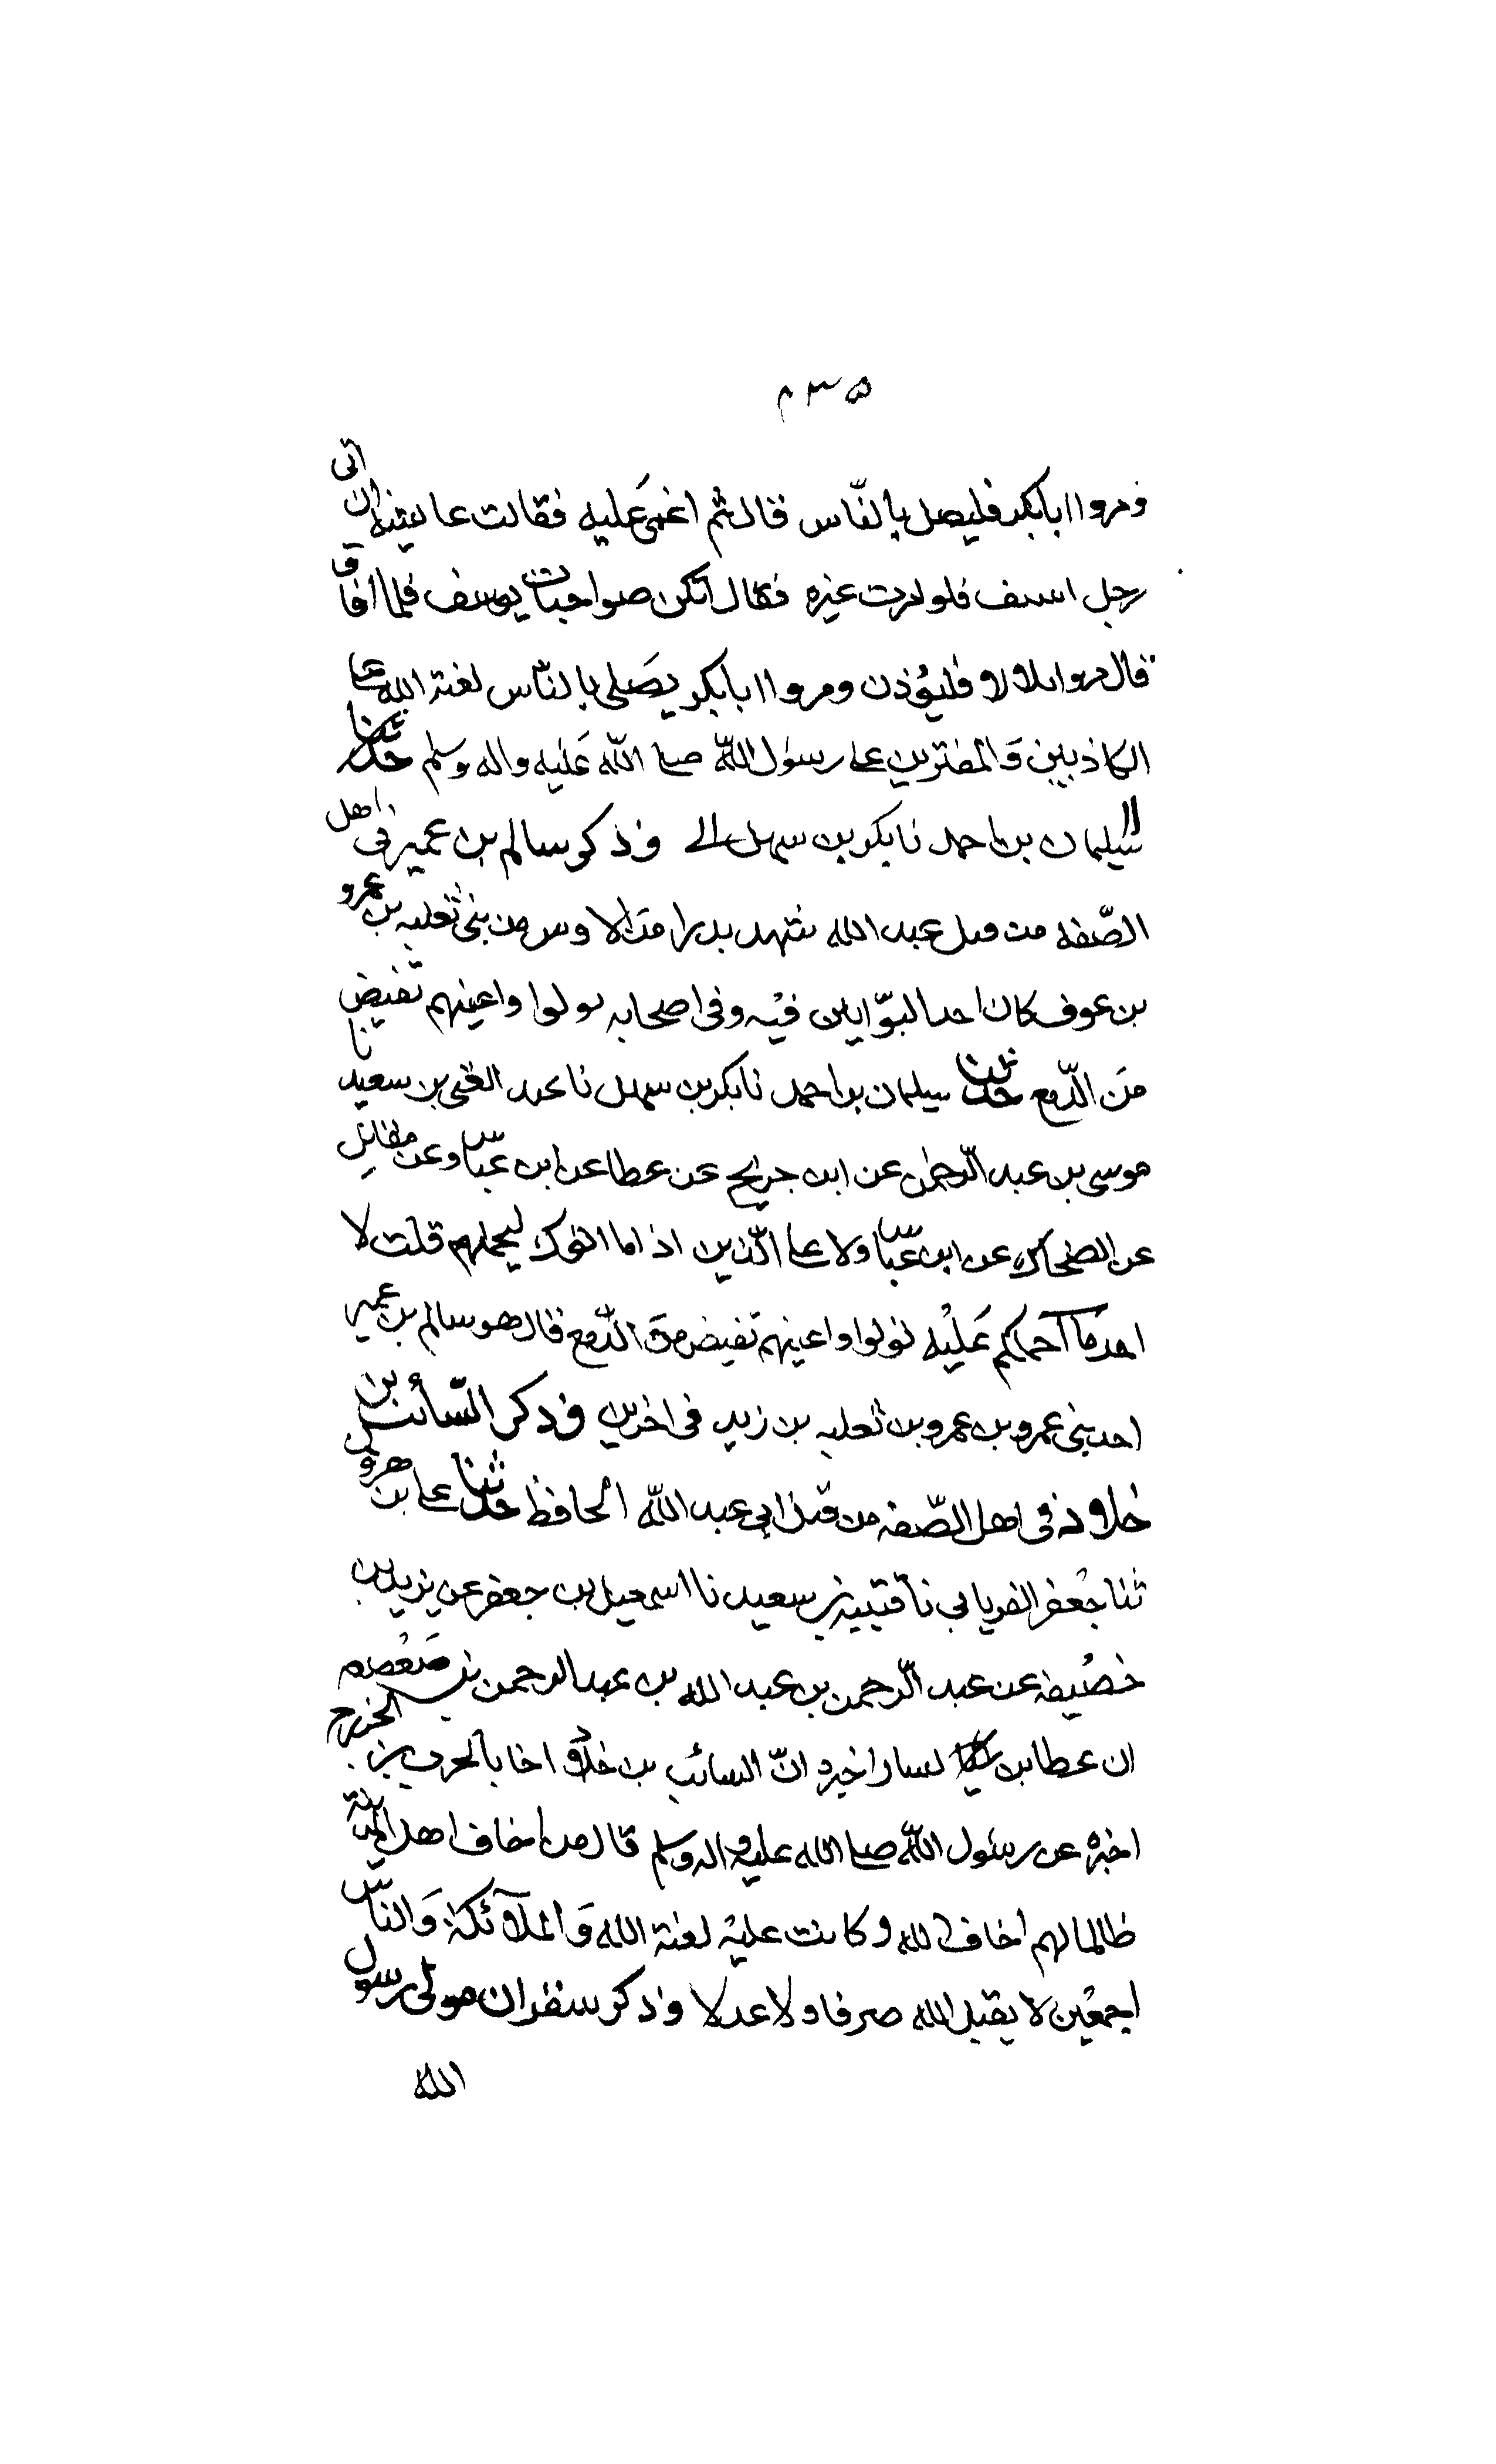 ٢٣٥
ومروا ابابكر فليصل بالنّاس قال ثم اغمى عَليه فقالت عايشه ان ابى
رجل اسف فلو امرت غيره فقال انكن صواحبات يوسف فلما افاق
قال مروا بلالا فليؤذن ومروا ابابكر يصَلى بالنّاس لعنة الله على
الكاذبين وَالمفترين على رسول اللّه صلى اللّه عَليه واله وسلم حدثنا
سليمان بن احمد نا بكر بن سهل وذكر سالم بن عمير فى اهل
الصّفه من قبل عبد الله شهد بدرا منَ الاوس من بنى ثعلبه بن عمرو
بن عوف كان احد البوّابين فيه وفى اصحابه تولوا واعينهم تفيض
منَ الدّمع حدثنا سليمان بن احمد نا بكر بن سهل نا عبد الغنى بن سعيد نا
موسى بن عبد الرّحمن عن ابن جريج عن عطا عن ابن عبّاس وعن مقاتل
عن الضحاك عن ابن عبّاس ولا على الّذين اذا ما اتوك لتحملهم قلت لا
اجد مَا احملكم عَليْه تولوا واعينهم تفيض منَ الدّمع قال هو سالم بن عمير
احد بنى عمرو بن عمرو بن ثعلبه بن زيد فى اخرين وذكر السّائب بن
خلاد فى اهل الصّفه من قبل ابي عبد اللّه الحافظ حدثنا على بن هرون
ثنا جعفر الفريابى نا قتيبه بن سعيد نا اسمعيل بن جعفر عن يزيد بن
خصيفه عن عبد الرّحمن بن عبد الله بن عبد الرحمن بن صَعْصعه
ان عطا بن يسار اخبره انّ السائب بن خلاد اخا بالحرب بن الخزرج
اخبره عن رسُول اللّه صلى الله عليه واله وسلم قال من اخاف اهل المدينة
ظالما لهم اخاف الله وكانت عليْه لعنة الله وَالملآئكة وَالناسّ
اجمعين لا يقبل الله صرفا ولا عدلا وذكر سقران مولى رسول
الله